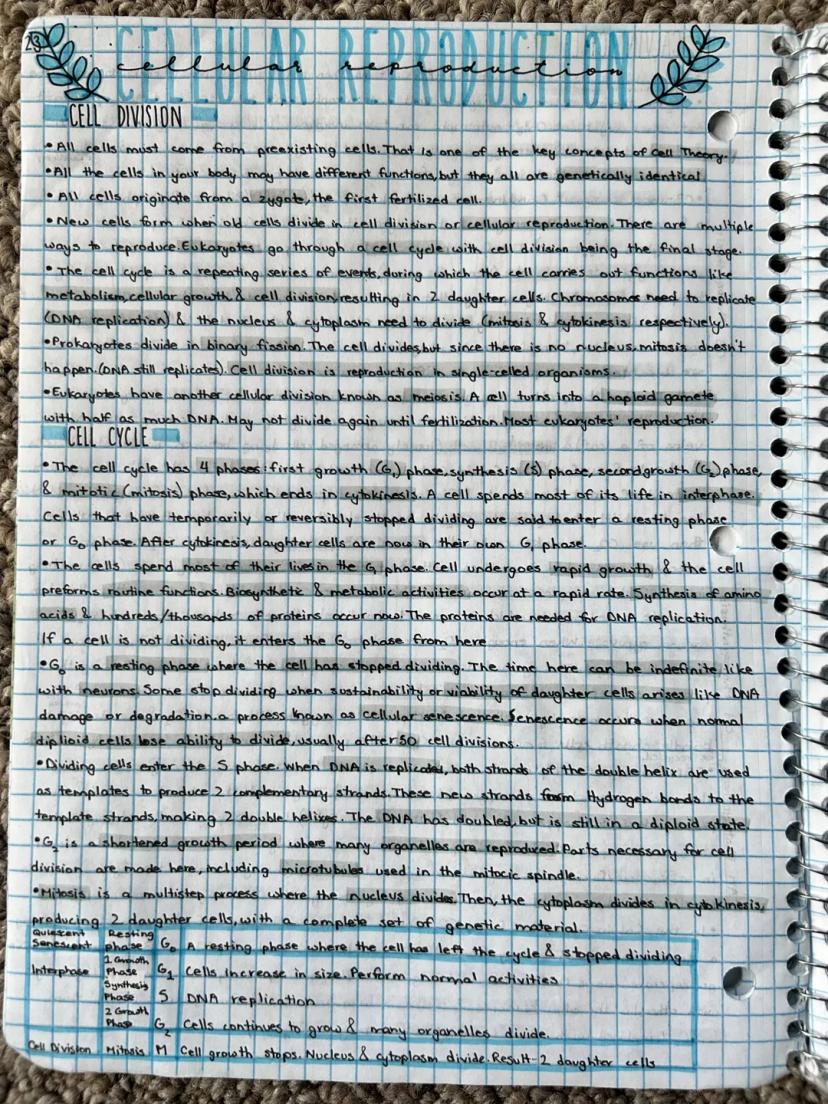 23
CELLULAR REPRODUCTION
cellular reproduction
CELL DIVISION
•All cells must come from preexisting cells. That is one of the key concepts of Cell Theory.
•All the cells in your body may have different functions, but they all are genetically identical
•All cells originate from a zygote, the first fertilized cell.
•New cells form when old cells divide in cell division or cellular reproduction. There are multiple
ways to reproduce. Eukaryotes go through a cell cycle with cell division being the final stage.
•The cell cycle is a repeating series of events, during which the cell carries out functions like
metabolism, cellular growth, & cell division, resulting in 2 daughter cells. Chromosomes need to replicate
(DNA replication) & the nucleus & cytoplasm need to divide (mitosis & cytokinesis respectively).
•Prokaryotes divide in binary fission. The cell divides, but since there is no nucleus, mitosis doesn't
happen. (DNA still replicates). Cell division is reproduction in single-celled organisms.
•Eukaryotes have another cellular division known as meiosis. A cell turns into a haploid gamete
with half as much DNA. May not divide again until fertilization. Most eukaryotes' reproduction.
CELL CYCLE
•The cell cycle has 4 phases: first growth (G₁) phase, synthesis (S) phase, second growth (G₂) phase,
& mitotic (mitosis) phase, which ends in cytokinesis. A cell spends most of its life in interphase.
Cells that have temporarily or reversibly stopped dividing are said to enter a resting phase
or G₀ phase. After cytokinesis, daughter cells are now in their own G₁ phase.
•The cells spend most of their lives in the G₁ phase. Cell undergoes rapid growth & the cell
preforms routine functions. Biosynthetic & metabolic activities occur at a rapid rate. Synthesis of amino
acids & hundreds/thousands of proteins occur now. The proteins are needed for DNA replication.
If a cell is not dividing, it enters the G₀ phase from here
•G₀ is a resting phase where the cell has stopped dividing. The time here can be indefinite, like
with neurons. Some stop dividing when sustainability or viability of daughter cells arises like DNA
damage or degradation, a process known as cellular senescence. Senescence occurs when normal
diplioid cells lose ability to divide, usually after 50 cell divisions.
•Dividing cells enter the S phase. When DNA is replicated, both strands of the double helix are used
as templates to produce 2 complementary strands. These new strands form Hydrogen bonds to the
template strands, making 2 double helixes. The DNA has doubled, but is still in a diploid state.
•G₂ is a shortened growth period where many organelles are reproduced. Parts necessary for cell
division are made here, including microtubules used in the mitocic spindle.
•Mitosis is a multistep process where the nucleus divides. Then, the cytoplasm divides in cytokinesis,
producing 2 daughter cells, with a complete set of genetic material.
Quiescent Senescent Resting phase G₀ A resting phase where the cell has left the cycle & stopped dividing
Interphase 1 Growth Phase G₁ Cells increase in size. Perform normal activities
Synthesis Phase S DNA replication
2 Growth Phase G₂ Cells continues to grow & many organelles divide.
Cell Division Mitosis M Cell growth stops. Nucleus & cytoplasm divide. Result-2 daughter cells